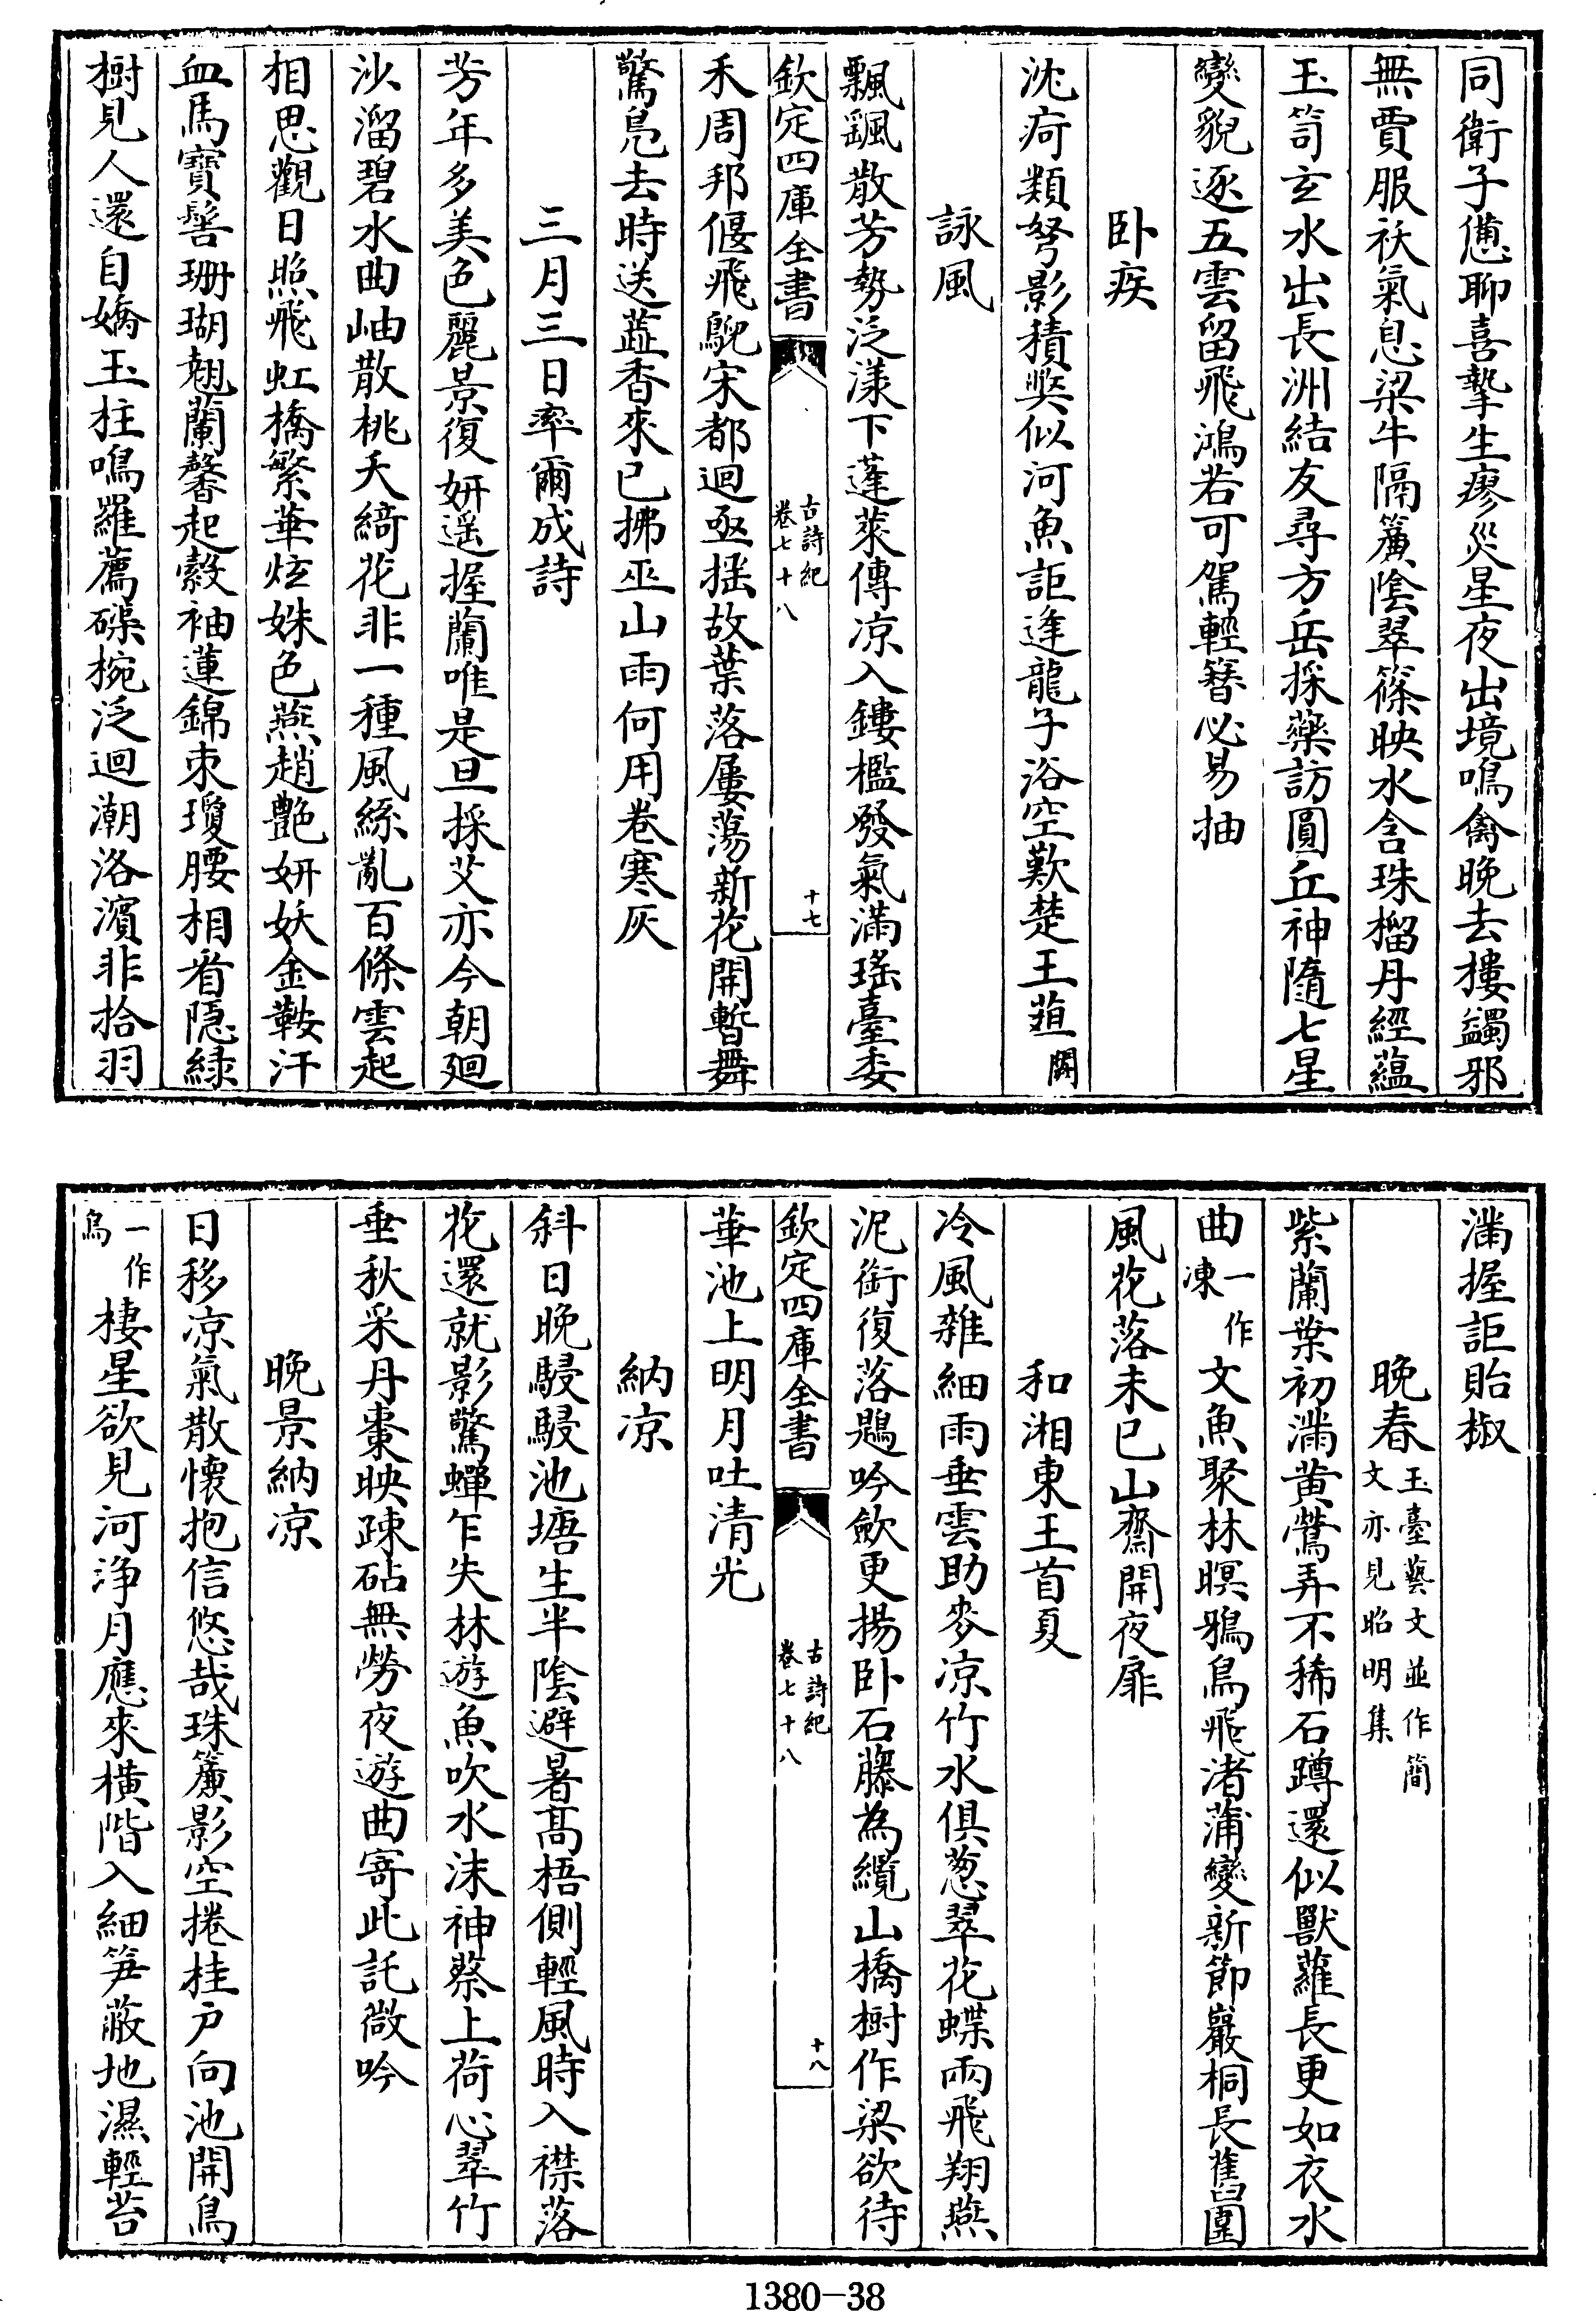 同衛子憊聊喜摯生瘳災星夜出境鳴禽晚去摟蠲邪
無賈服祅氣息梁牛隔簾陰翠篠映水含珠榴丹經蘊
玉笥玄水出長洲結友尋方岳採藥訪圓丘神隨七星
變貌逐五雲留飛鴻若可駕輕簪必易抽
卧疾
沈疴類弩影積獘似河魚詎逢龍子浴空歎楚王葅闕
詠風
飄颻散芳勢泛漾下蓬萊傳凉入鏤檻發氣滿瑤臺委
欽定四庫全書
古詩紀
卷七十八
十七
禾周邦偃飛鶂宋都迴亟搖故葉落屢蕩新花開暫舞
驚鳧去時送蕋香來已拂巫山雨何用卷寒灰
三月三日率爾成詩
芳年多美色麗景復妍遥握蘭唯是旦採艾亦今朝廻
沙溜碧水曲岫散桃夭綺花非一種風絲亂百條雲起
相思觀日照飛虹橋繁華炫姝色燕趙艶妍妖金鞍汗
血馬寶髻珊瑚翹蘭馨起縠袖蓮錦束瓊腰相看隠緑
樹見人還自嬌玉柱鳴羅薦磲椀泛迴潮洛濱非拾羽
滿握詎貽椒
晚春
玉臺藝文並作簡
文亦見昭明集
紫蘭葉初滿黄鶯弄不稀石蹲還似獸蘿長更如衣水
曲一作凍文魚聚林暝鴉鳥飛渚蒲變新節巖桐長舊圍
風花落未已山齋開夜扉
和湘東王首夏
冷風雜細雨垂雲助麥凉竹水俱葱翠花蝶兩飛翔燕
泥銜復落鶗吟歛更揚卧石藤為纜山橋樹作梁欲待
欽定四庫全書
古詩紀
卷七十八
十八
華池上明月吐清光
納凉
斜日晚駸駸池塘生半陰避暑髙梧側輕風時入襟落
花還就影驚蟬乍失林遊魚吹水沫神蔡上荷心翠竹
垂秋采丹棗映疎砧無勞夜遊曲寄此託微吟
晚景納凉
日移凉氣散懷抱信悠哉珠簾影空捲桂户向池開鳥
一作烏棲星欲見河淨月應來横階入細笋蔽地濕輕苔
1380-38